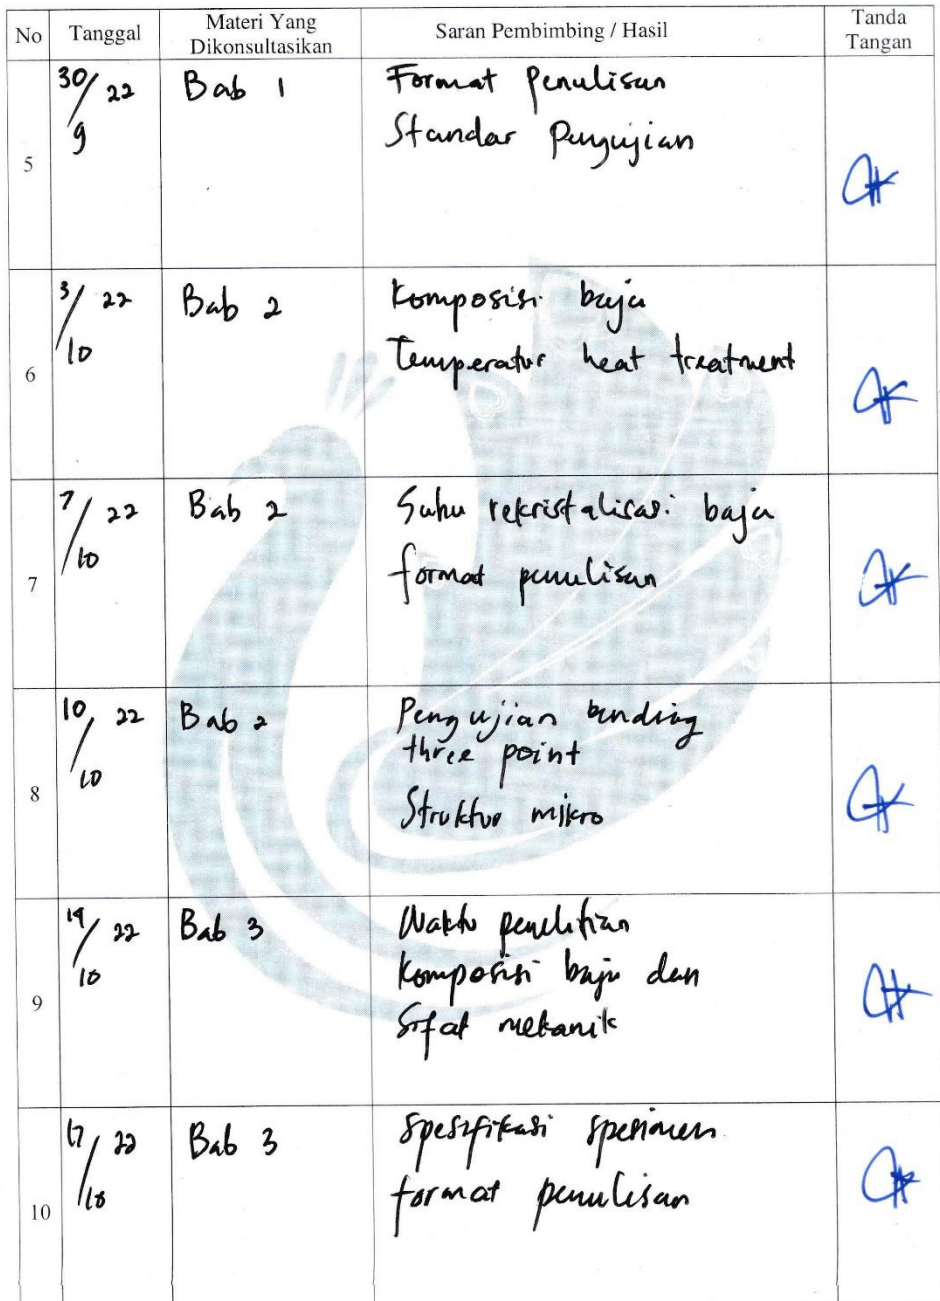 No Tanggal Materi Yang Dikonsultasikan Saran Pembimbing / Hasil Tanda Tangan
5 30/9 22 Bab 1 Format Penulisan
Standar Pengujian
6 3/10 22 Bab 2 Komposisi baja
Temperatur heat treatment
7 7/10 22 Bab 2 Suhu rekristalisasi baja
format penulisan
8 10/10 22 Bab 2 Pengujian bending
three point
Struktur mikro
9 14/10 22 Bab 3 Waktu penelitian
Komposisi baja dan
Sifat mekanik
10 17/10 22 Bab 3 Spesifikasi spesimen
format penulisan